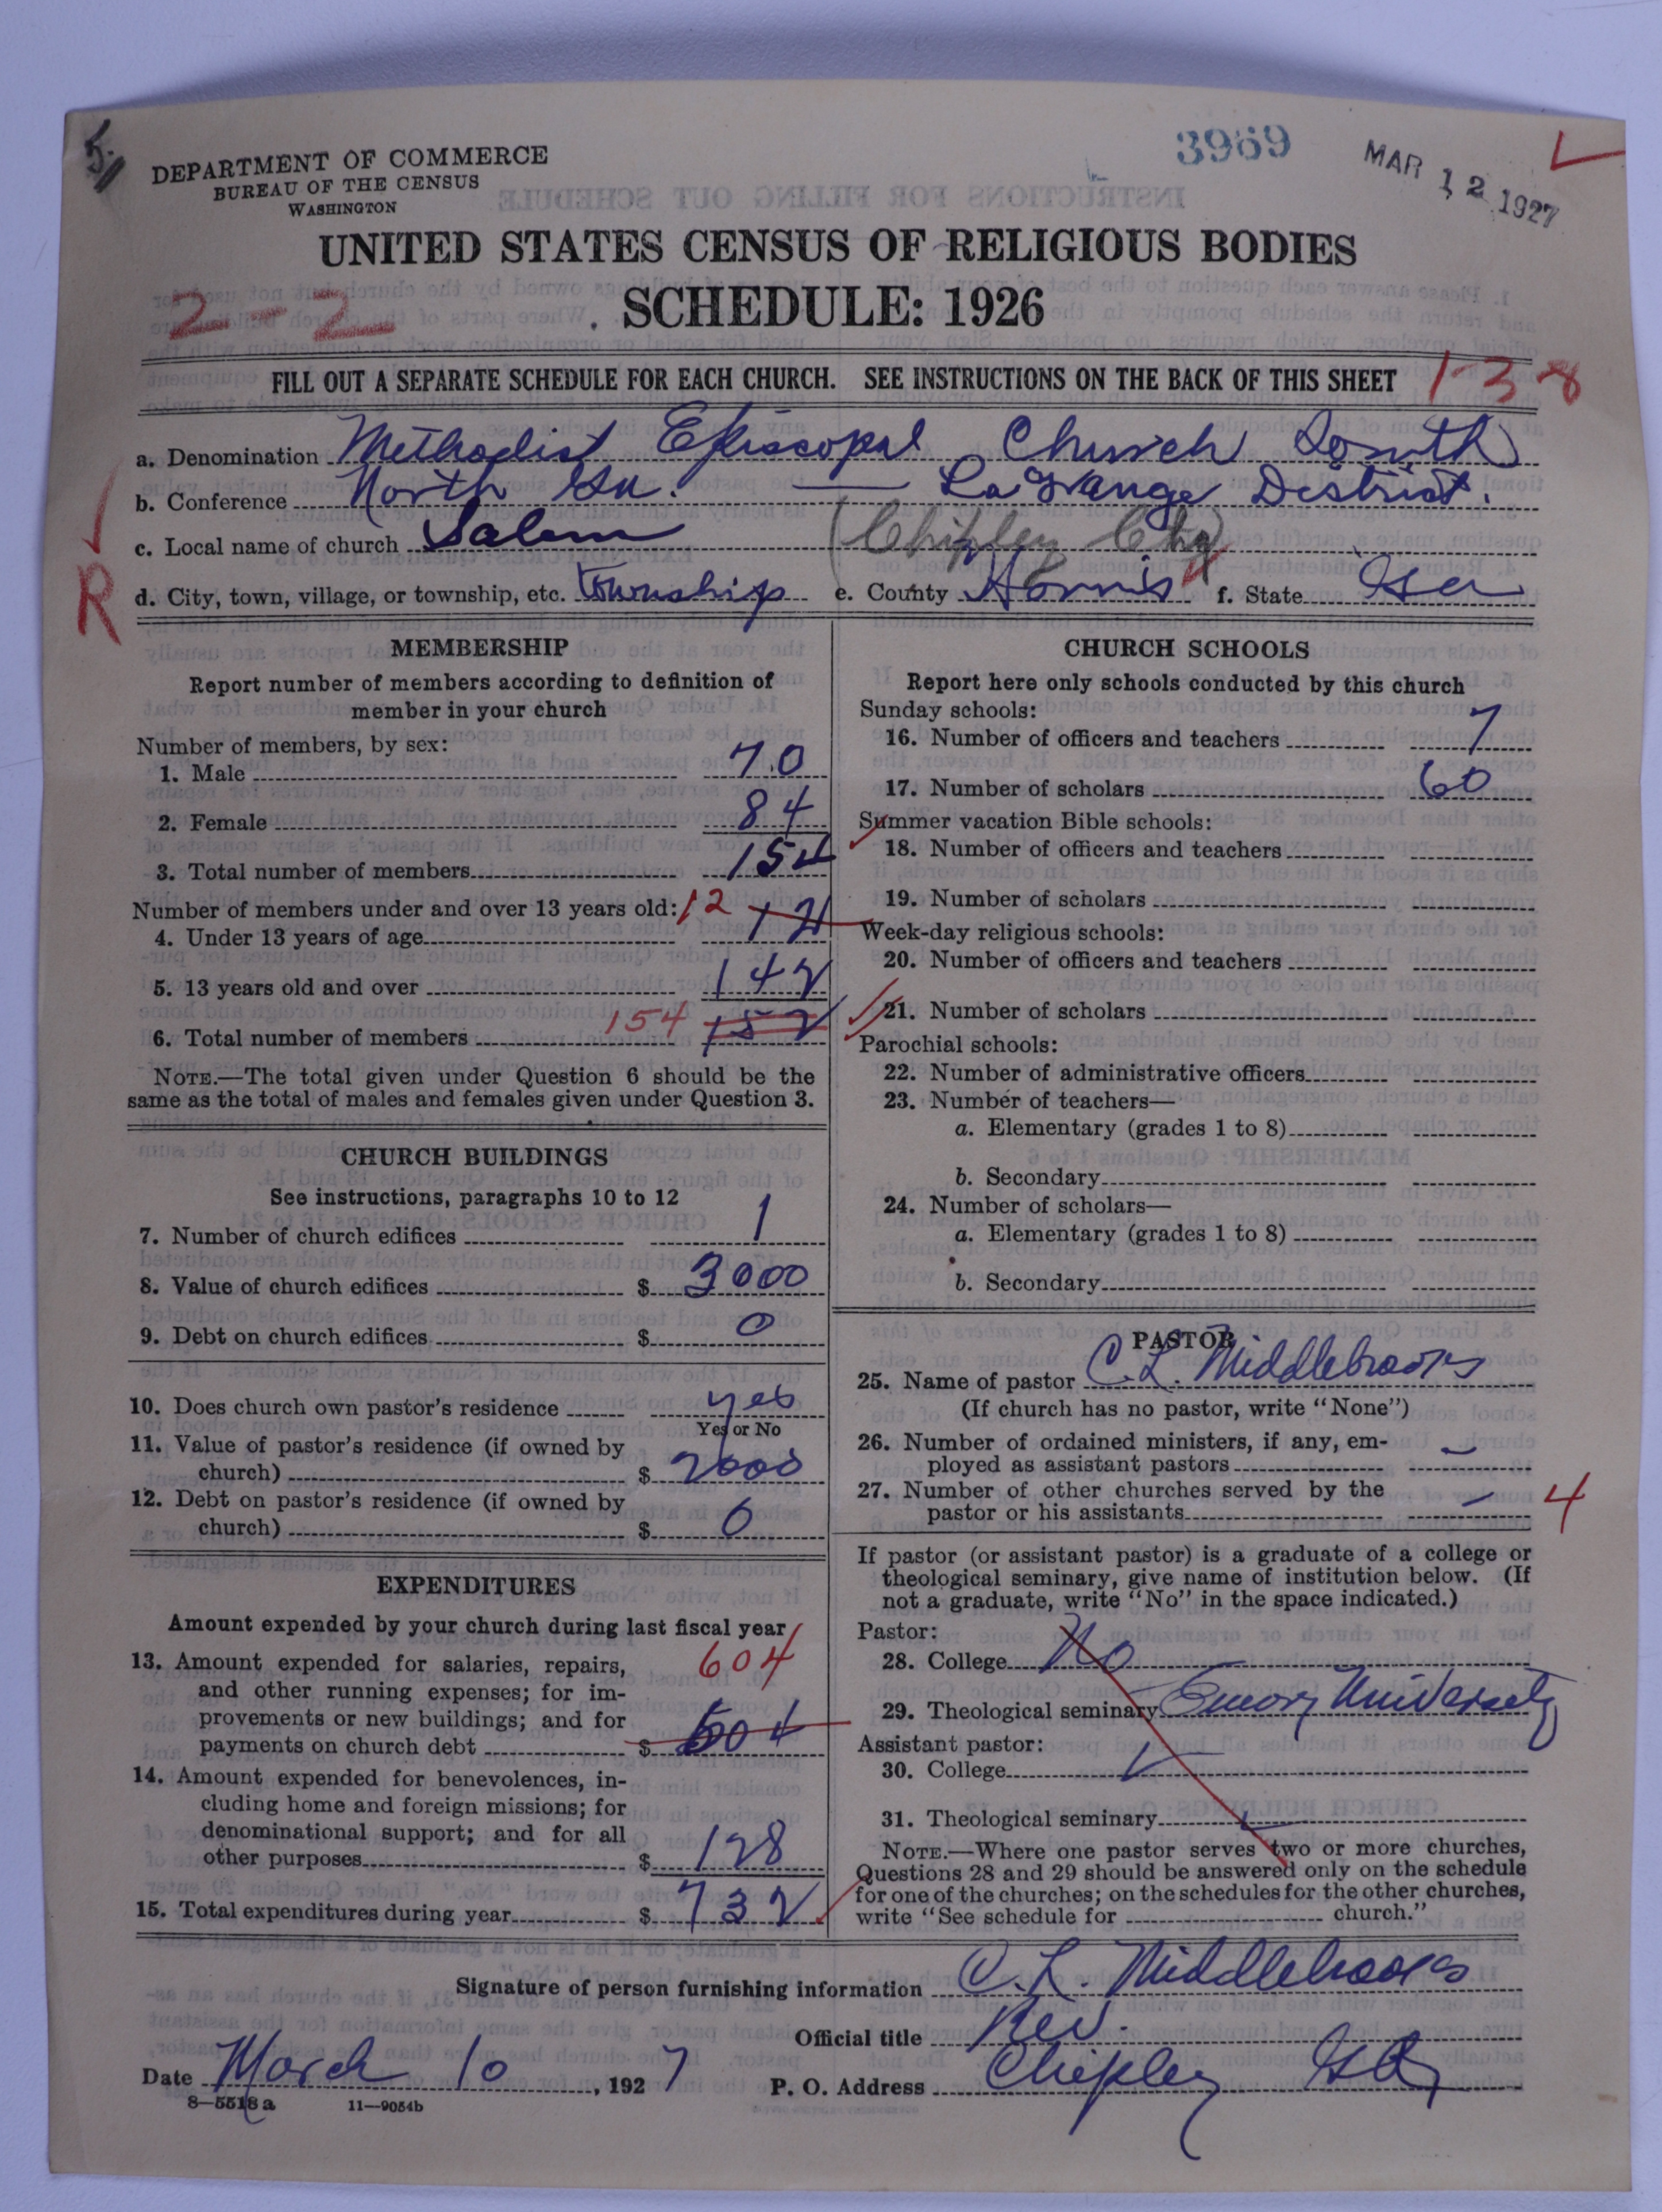 5.
3969
MAR 12 1927
DEPARTMENT OF COMMERCE
BUREAU OF THE CENSUS
WASHINGTON
UNITED STATES CENSUS OF RELIGIOUS BODIES
2-2
SCHEDULE: 1926
FILL OUT A SEPARATE SCHEDULE FOR EACH CHURCH. SEE INSTRUCTIONS ON THE BACK OF THIS SHEET
1-38
a. Denomination Methodist Episcopal Church South
b. Conference North Ga. — LaGrange District.
c. Local name of church Salem (Chipley City)
R
d. City, town, village, or township, etc. township e. County Harris f. State Ga
MEMBERSHIP
Report number of members according to definition of
member in your church
Number of members, by sex:
1. Male 70
2. Female 84
3. Total number of members 154
Number of members under and over 13 years old: 12
4. Under 13 years of age 12
5. 13 years old and over 142
6. Total number of members 154 152
NOTE.—The total given under Question 6 should be the
same as the total of males and females given under Question 3.
CHURCH BUILDINGS
See instructions, paragraphs 10 to 12
7. Number of church edifices 1
8. Value of church edifices $ 3000
9. Debt on church edifices $ 0
10. Does church own pastor's residence yes
Yes or No
11. Value of pastor's residence (if owned by
church) $ 2000
12. Debt on pastor's residence (if owned by
church) $ 0
EXPENDITURES
Amount expended by your church during last fiscal year
13. Amount expended for salaries, repairs, 604
and other running expenses; for im-
provements or new buildings; and for
payments on church debt $ 604
14. Amount expended for benevolences, in-
cluding home and foreign missions; for
denominational support; and for all
other purposes $ 128
15. Total expenditures during year $ 732
CHURCH SCHOOLS
Report here only schools conducted by this church
Sunday schools:
16. Number of officers and teachers 7
17. Number of scholars 60
Summer vacation Bible schools:
18. Number of officers and teachers
19. Number of scholars
Week-day religious schools:
20. Number of officers and teachers
21. Number of scholars
Parochial schools:
22. Number of administrative officers
23. Number of teachers—
a. Elementary (grades 1 to 8)
b. Secondary
24. Number of scholars—
a. Elementary (grades 1 to 8)
b. Secondary
PASTOR
25. Name of pastor C. L. Middlebrooks
(If church has no pastor, write "None")
26. Number of ordained ministers, if any, em-
ployed as assistant pastors —
27. Number of other churches served by the
pastor or his assistants — 4
If pastor (or assistant pastor) is a graduate of a college or
theological seminary, give name of institution below. (If
not a graduate, write "No" in the space indicated.)
Pastor:
28. College No
29. Theological seminary Emory University
Assistant pastor:
30. College
31. Theological seminary
NOTE.—Where one pastor serves two or more churches,
Questions 28 and 29 should be answered only on the schedule
for one of the churches; on the schedules for the other churches,
write "See schedule for church."
Signature of person furnishing information C. L. Middlebrooks
Official title Rev.
Date March 10, 1927 P. O. Address Chipley Ga
8—5518 a 11—9054b